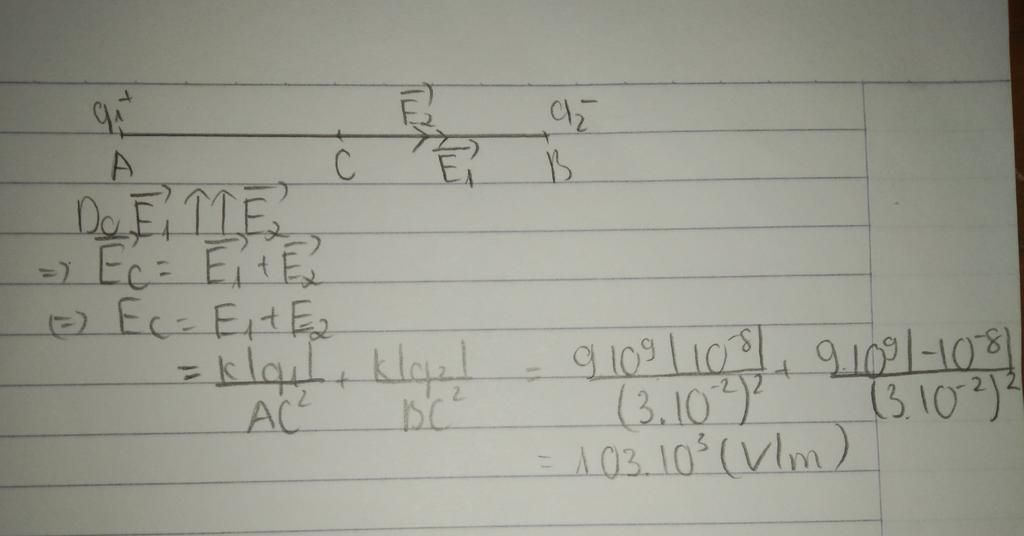 q₁⁺ E₂⃗ q₂⁻
A C E₁⃗ B
Do E₁⃗ ↑↑ E₂⃗
=> E⃗c = E₁⃗ + E₂⃗
(=) Ec = E₁ + E₂
= k|q₁|/AC² + k|q₂|/BC² = 9.10⁹|10⁻⁸|/(3.10⁻²)² + 9.10⁹|-10⁻⁸|/(3.10⁻²)²
= 103.10³ (V/m)